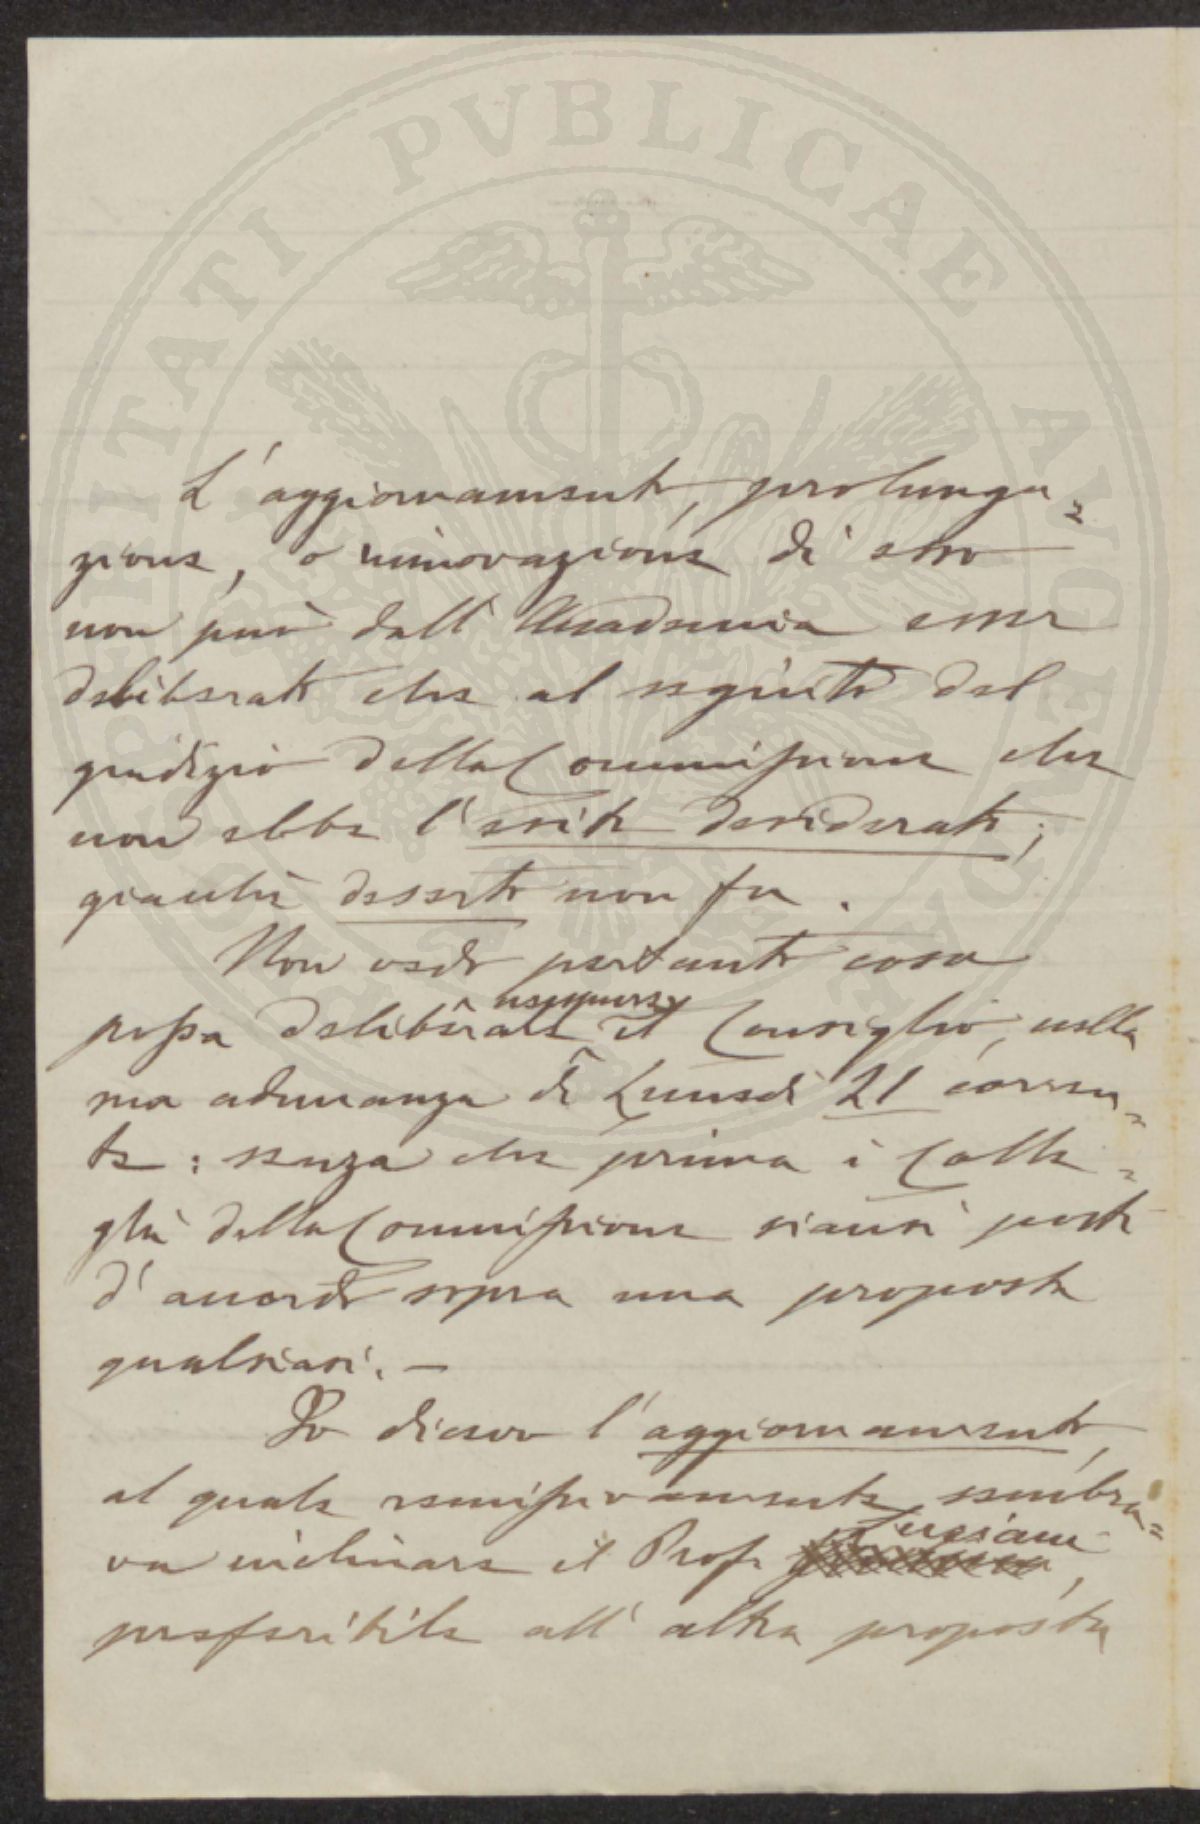 PROSPERITATI PVBLICAE AVGENDAE
L'aggiornamento, prolunga=
zione, o rinnovazione di esso
non può dall'Accademia esser
deliberato che al seguito del
giudizio della Commissione che
non ebbe l'esito desiderato;
giacchè deserto non fu.
Non vedo pertanto cosa
nemmeno
possa deliberare il Consiglio, nella
sua adunanza di Lunedì 21 corren=
te: senza che prima i Colle=
ghi della Commissione siansi posti
d'accordo sopra una proposta
qualsiasi. —
Io dicevo l'aggiornamento,
al quale remissivamente sembra=
Luciani
va inclinare il Prof.,
preferibile all'altra proposta